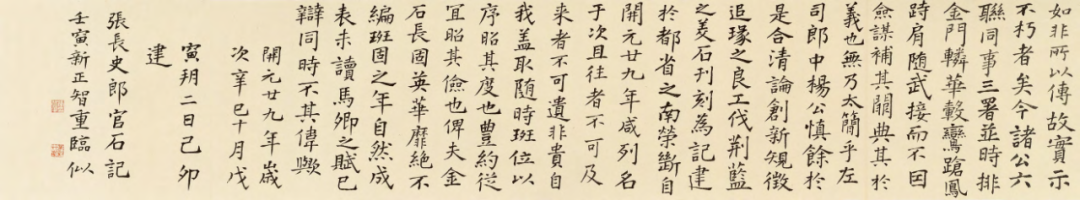 如非所以傳故實示
不朽者矣今諸公六
聯同事三署並時排
金門轔華轂鸞蹌鳳
跱肩隨武接而不因
僉謀補其闕典其於
義也無乃太簡乎左
司郎中楊公慎餘於
是合清論創新規徵
追琢之良工伐荊藍
之美石刊刻為記建
於都省之南榮斷自
開元廿九年咸列名
于次且往者不可及
來者不可遺非貴自
我蓋取隨時班位以
序昭其度也豊約從
宜昭其儉也俾夫金
石長固英華靡絕不
編班固之年自然成
表未讀馬卿之賦已
辯同時不其偉歟
開元廿九年歲
次辛巳十月戊
寅朔二日己卯
建
張長史郎官石記
壬寅新正智重臨似